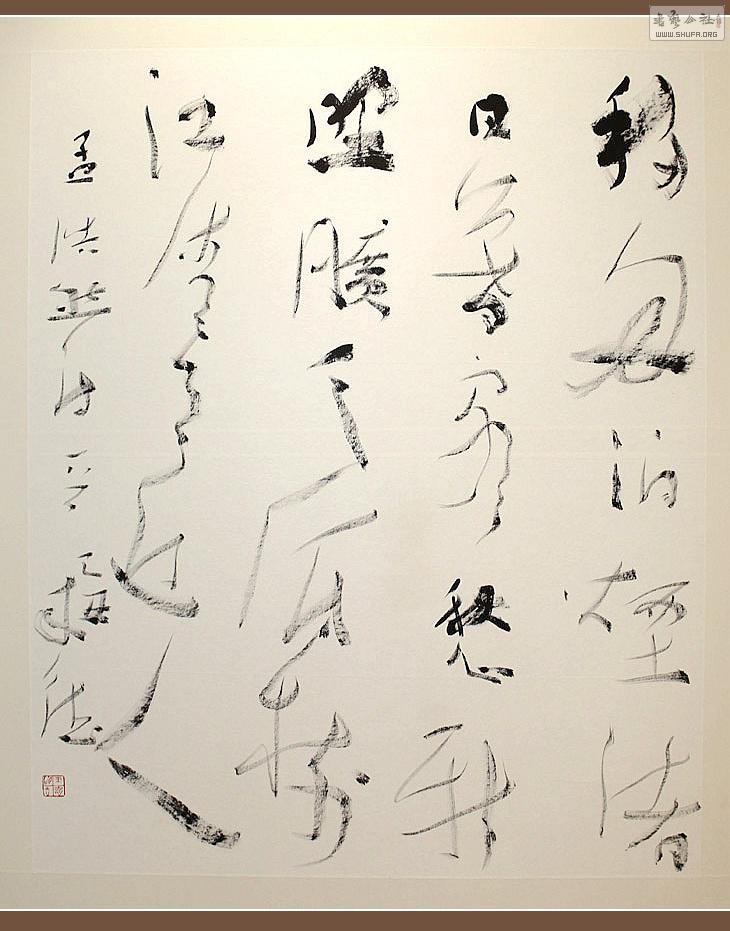 移舟泊煙渚
日暮客愁新
野曠天低樹
江清月近人
孟浩然诗一首
书艺公社
WWW.SHUFA.ORG